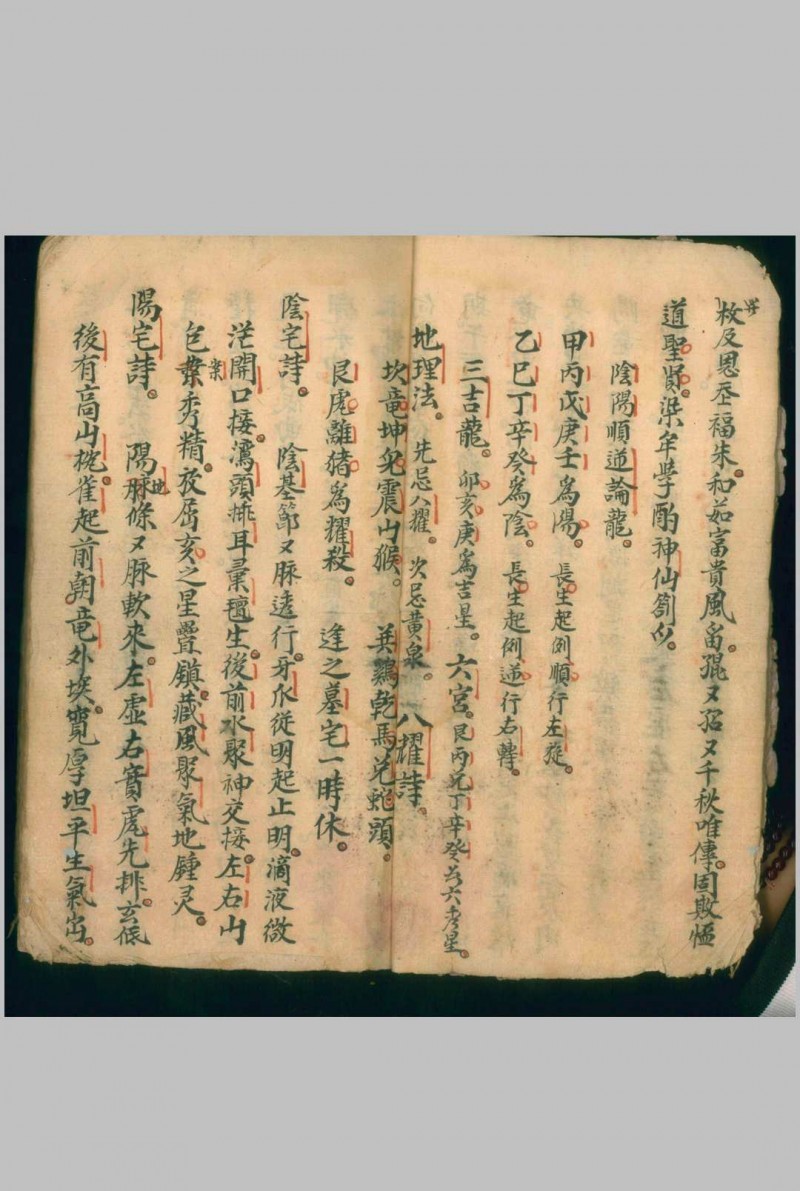 枚及恩丕福朱和茹富貴風畄㧾又招又千秋唯傳固敗恆
道聖賢梁牟學酌神仙劄
陰陽順逆論龍
甲丙戊庚壬爲陽 長生起例順行左旋
乙巳丁辛癸爲陰 長生起例逆行右轉
三吉龍 卯亥庚爲吉星 六宮艮丙兑丁辛癸爲六秀星
地理法 先忌八耀 次忌黄泉 八耀詩
坎竜坤兔震山猴 巽鷄乾馬兑蛇頭
艮虎離猪爲耀殺 逢之墓宅一時休
陰宅詩 陰基節又脉遠行牙爪從明起止明滴液微
茫開口接濡頭排耳橐𣞁生後前水聚神交接左右山
包秀精夜居亥之星疊鎮藏風聚氣地鍾灵
陽宅詩 陽地脉條又脉軟來左虛右實虎先排玄低
後有高山枕雀起前朝竜外埃寬厚坦平生氣出